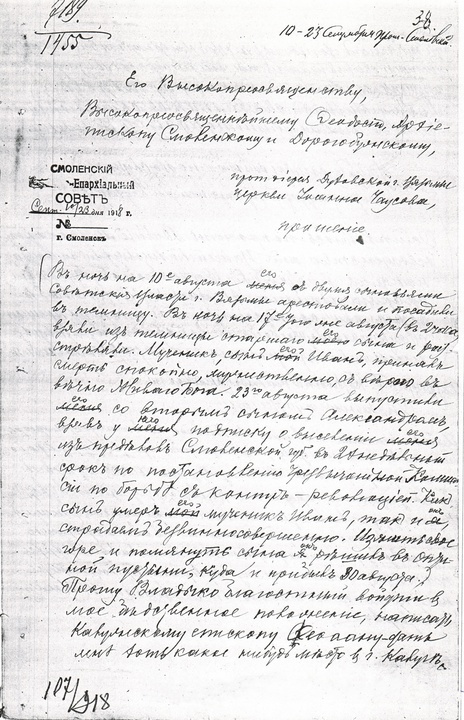 1455
10-23 Сентября
38.
Его Высокопреосвященству,
Высокопреосвященнѣйшему Ѳеодосію, Архіе-
пископу Смоленскому и Дорогобужскому,
СМОЛЕНСКІЙ
Епархіальный
СОВѢТЪ
Сент. 10/23 дня 1918 г.
№
г. Смоленскъ
г. Вязьмы
церкви Іоанна Чаусова,
прошеніе.
Въ ночь на 10е августа его меня съ двумя сыновьями
Совѣтскія власти г. Вязьмы арестовали и посадили
въ темницу. Въ ночь на 17е августа (въ 2 часа)
взяли изъ темницы старшаго его моего сына и раз
стрѣляли. Мученикъ, сынъ его мой Иванъ, принялъ
смерть спокойно, мужественно, съ вѣрою въ
вѣчно Живаго Бога. 23го августа выпустили
его меня со вторымъ сыномъ Александромъ,
взявъ у него меня подписку о выселеніи его меня
изъ предѣловъ Смоленской губ. въ 2хнедѣльный
срокъ по постановленію Чрезвычайной Комис
сіи по борьбѣ съ контръ-революціей. Какъ
сынъ умеръ его мой мученикъ Иванъ, такъ и онъ я,
страдаемъ
горе и помянуть сына онъ я рѣшилъ въ
ной пустыни, куда и прибылъ 30 августа.)
Прошу Владыко благостный войдти въ
мое бѣдственное положеніе, написать
Калужскому епископу Ѳеофану дать
мнѣ хоть какое нибудь мѣсто въ г. Калугѣ
187/918